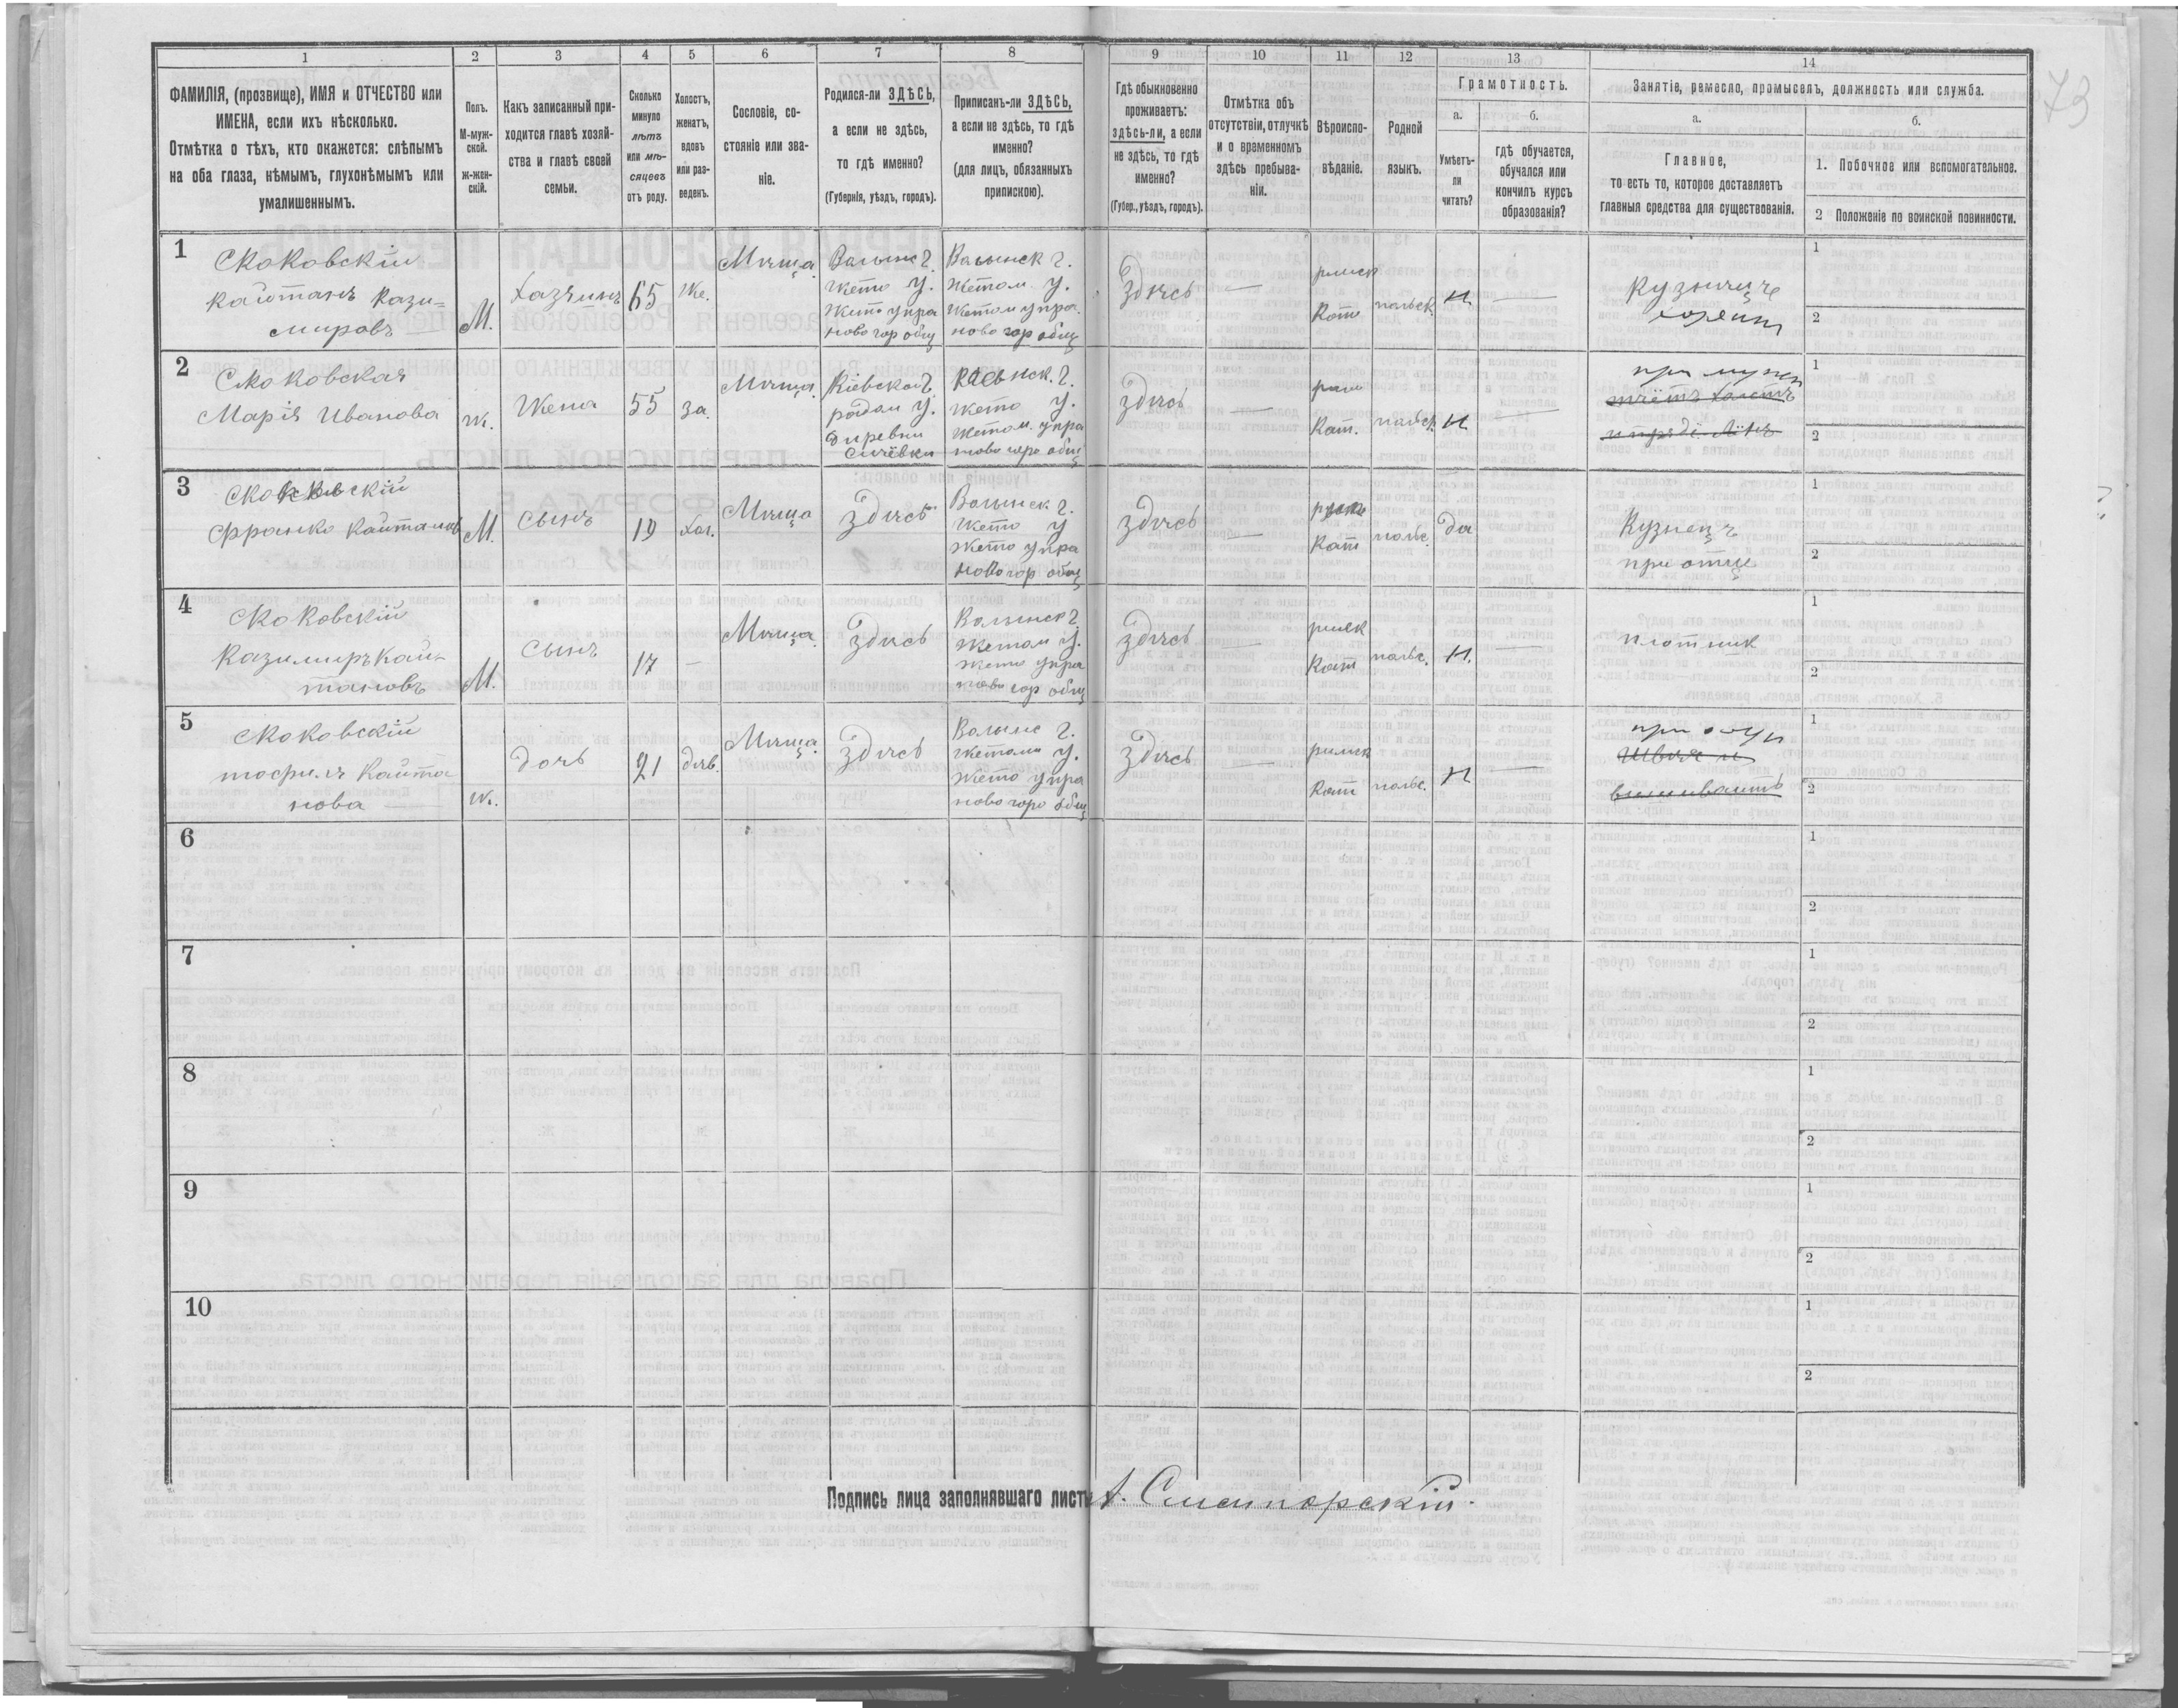 73
1 2 3 4 5 6 7 8 9 10 11 12 13 14
ФАМИЛІЯ, (прозвище), ИМЯ и ОТЧЕСТВО или
ИМЕНА, если ихъ нѣсколько.
Отмѣтка о тѣхъ, кто окажется: слѣпымъ
на оба глаза, нѣмымъ, глухонѣмымъ или
умалишеннымъ.
Полъ.
М-муж-
ской.
ж-жен-
скій.
Какъ записанный при-
ходится главѣ хозяй-
ства и главѣ своей
семьи.
Сколько
минуло
лѣтъ
или мѣ-
сяцевъ
отъ роду.
Холостъ,
женатъ,
вдовъ
или раз-
веденъ.
Сословіе, со-
стояніе или зва-
ніе.
Родился-ли ЗДѢСЬ,
а если не здѣсь,
то гдѣ именно?
(Губернія, уѣздъ, городъ).
Приписанъ-ли ЗДѢСЬ,
а если не здѣсь, то гдѣ
именно?
(для лицъ, обязанныхъ
припискою).
Гдѣ обыкновенно
проживаетъ:
здѣсь-ли, а если
не здѣсь, то гдѣ
именно?
(Губер., уѣздъ, городъ).
Отмѣтка объ
отсутствіи, отлучкѣ
и о временномъ
здѣсь пребыва-
ніи.
Вѣроиспо-
вѣданіе.
Родной
языкъ.
Грамотность.
а.
Умѣетъ-
ли
читать?
б.
гдѣ обучается,
обучался или
кончилъ курсъ
образованія?
Занятіе, ремесло, промыселъ, должность или служба.
а.
Главное,
то есть то, которое доставляетъ
главныя средства для существованія.
б.
1. Побочное или вспомогательное.
2 Положеніе по воинской повинности.
1
Скоковскій
Кайтанъ Кази-
міровъ
М.
Хазяинъ
65
Же.
Мѣща.
Волынс г.
Жето у.
Жето упра
новогор общ
Волынск г.
Жетом. у.
Жетом упра.
новогор общ
Здѣсь
—
римск
Кат
польск.
н
—
1
2
2
Скоковская
Марія Иванова
ж.
Жена
55
За.
Мѣща.
Кіевской г.
радом у.
Деревни
Сичевки
г.
Жето у.
Жетом. упра
новогоро общ
здѣсь
—
рим
Кат.
польск.
н
—
при мужи
1
2
3
Скоковскій
Франко Кайтановъ
М.
Сынъ
19
Хол.
Мѣща
Здѣсь
Волынск г.
Жето у
Жето упра
новогор общ
здѣсь
—
римс
Кат
польс.
да
Кузнецъ
при отце
1
2
4
Скоковскій
Казимиръ Кай-
тановъ
М.
Сынъ
17
—
Мѣща.
Здѣсь
Волынск г.
Жетом у.
Жето упра
ново гор общ
здѣсь
—
римск
Кат
польс.
н.
—
плотник
1
2
5
Скоковскій
Кайта
нова
ж.
дочь
21
дѣв.
Мѣща.
Здѣсь
Волынс г.
Жетом у.
Жето упра
новогоро общ
Здѣсь
—
римск
Кат
польс.
н
—
при отци
Швея и
вышиваетъ
1
2
6
1
2
7
1
2
8
1
2
9
1
2
10
1
2
Подпись лица заполнявшаго листъ